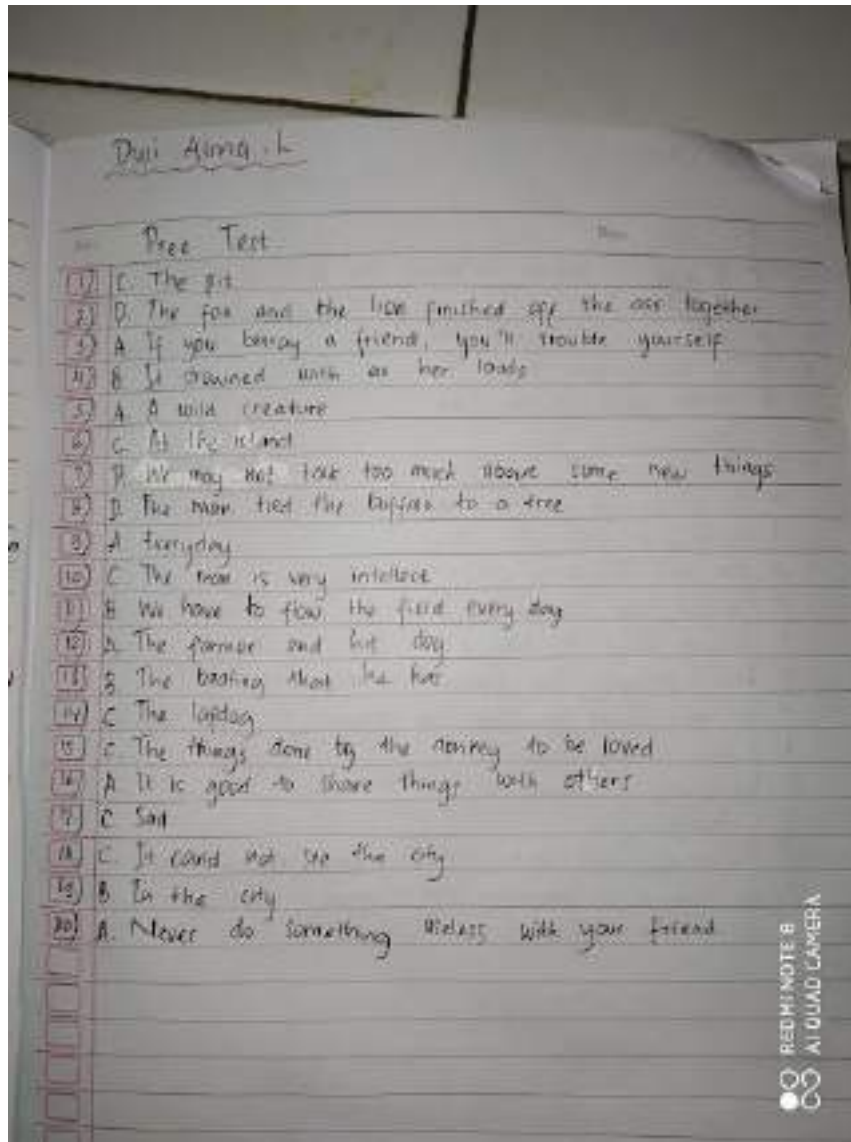 Pree Test
1) C. The pit
2) D. The fox and the lion finished off the ass together
3) A If you betray a friend, you'll trouble yourself
4) B It drowned with as her loads
5) A. A wild creature
6) C. At the island
7) D. We may not talk too much above some new things
8) D. The man tied the buffalo to a tree
9) A Everyday
10) C The man is very intellect
11) B We have to the field every day
12) D. The farmer and his dog
13) B The that he has
14) C The lapdog
15) C. The things done by the donkey to be loved
16) A It is good to share things with others
17) C Sad
18) C. It could not see the city
19) B In the city
20) A. Never do something useless with your friend
REDMI NOTE 8
AI QUAD CAMERA